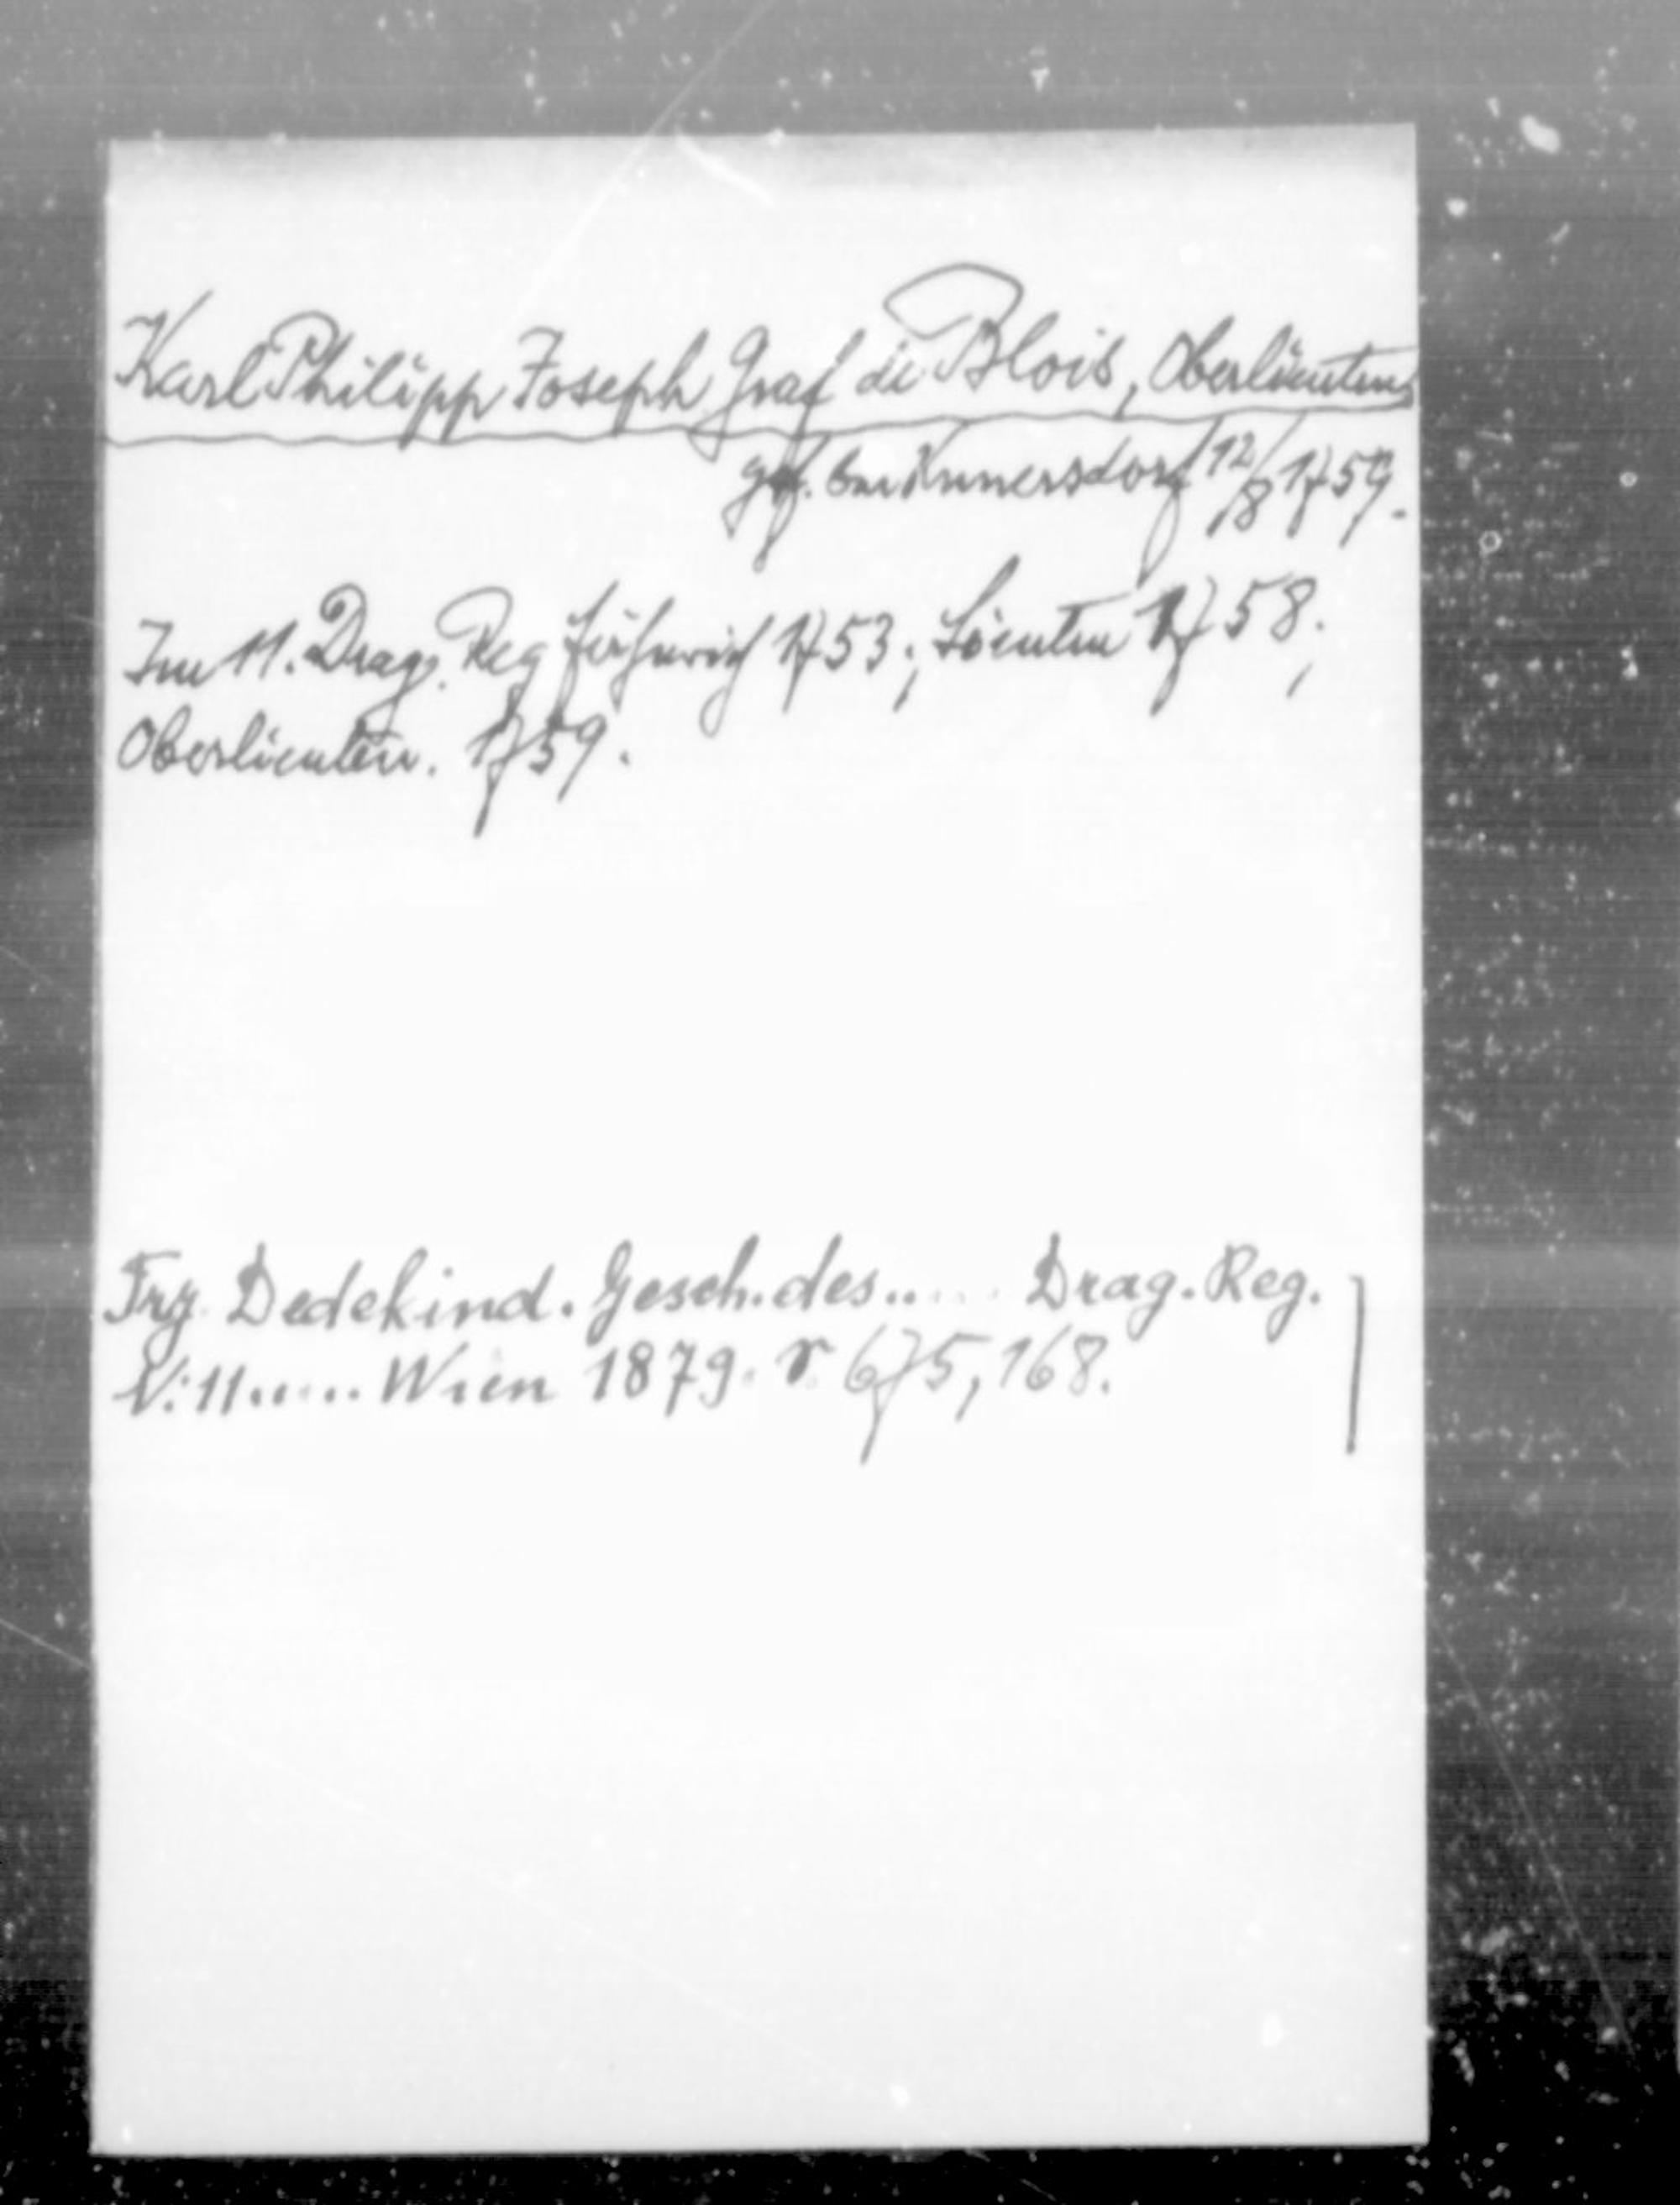 Karl Philipp Joseph Graf de Blois, Oberlieuten
gef. bei Kunersdorf 12/8 1759.
Im 11. Drag. Reg Fähnrich 1753; Lieuten 1758;
Oberlieuten. 1759.
Frz. Dedekind. Gesch. des..... Drag. Reg.
N: 11..... Wien 1879. 675, 168.